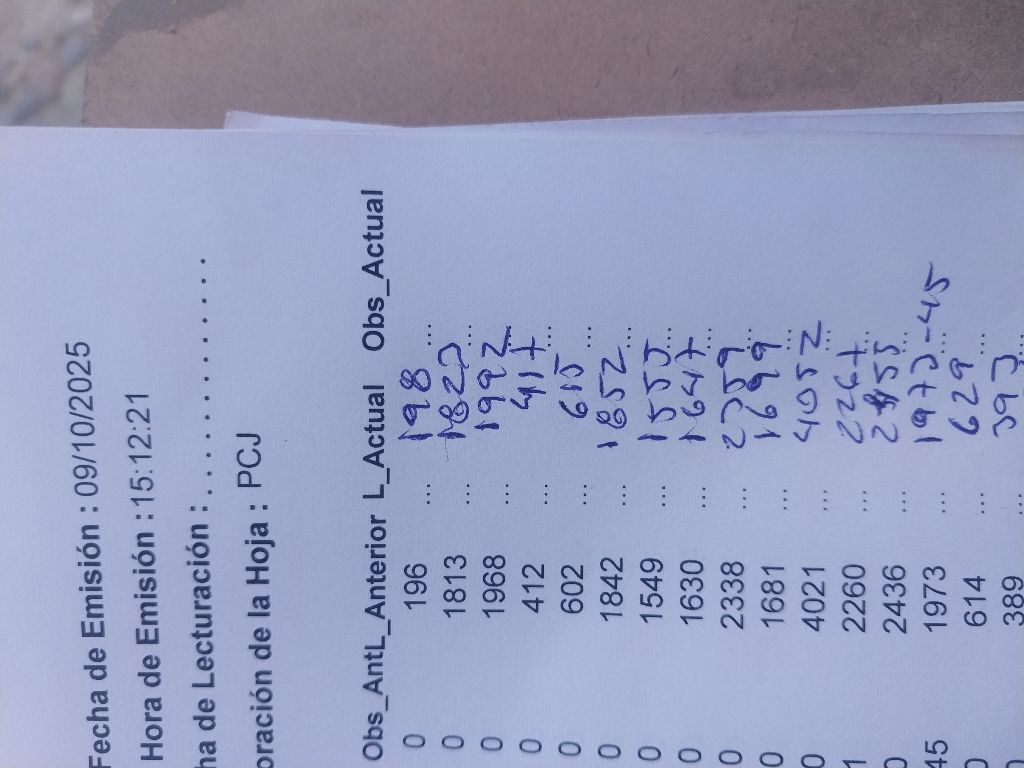 Fecha de Emisión : 09/10/2025
Hora de Emisión : 15:12:21
ha de Lecturación : . . . . . . . . . . . . . .
oración de la Hoja : PCJ
Obs_AntL_Anterior L_Actual Obs_Actual
0 196 ... 198 ...
0 1813 ... 1823 ...
0 1968 ... 1992 ...
0 412 ... 417 ...
0 602 ... 615 ...
0 1842 ... 1852 ...
0 1549 ... 1555 ...
0 1630 ... 1647 ...
0 2338 ... 2359 ...
0 1681 ... 1699 ...
0 4021 ... 4052 ...
1 2260 ... 2267 ...
0 2436 ... 2455 ...
45 1973 ... 1973-45
0 614 ... 629 ...
0 389 ... 393 ...